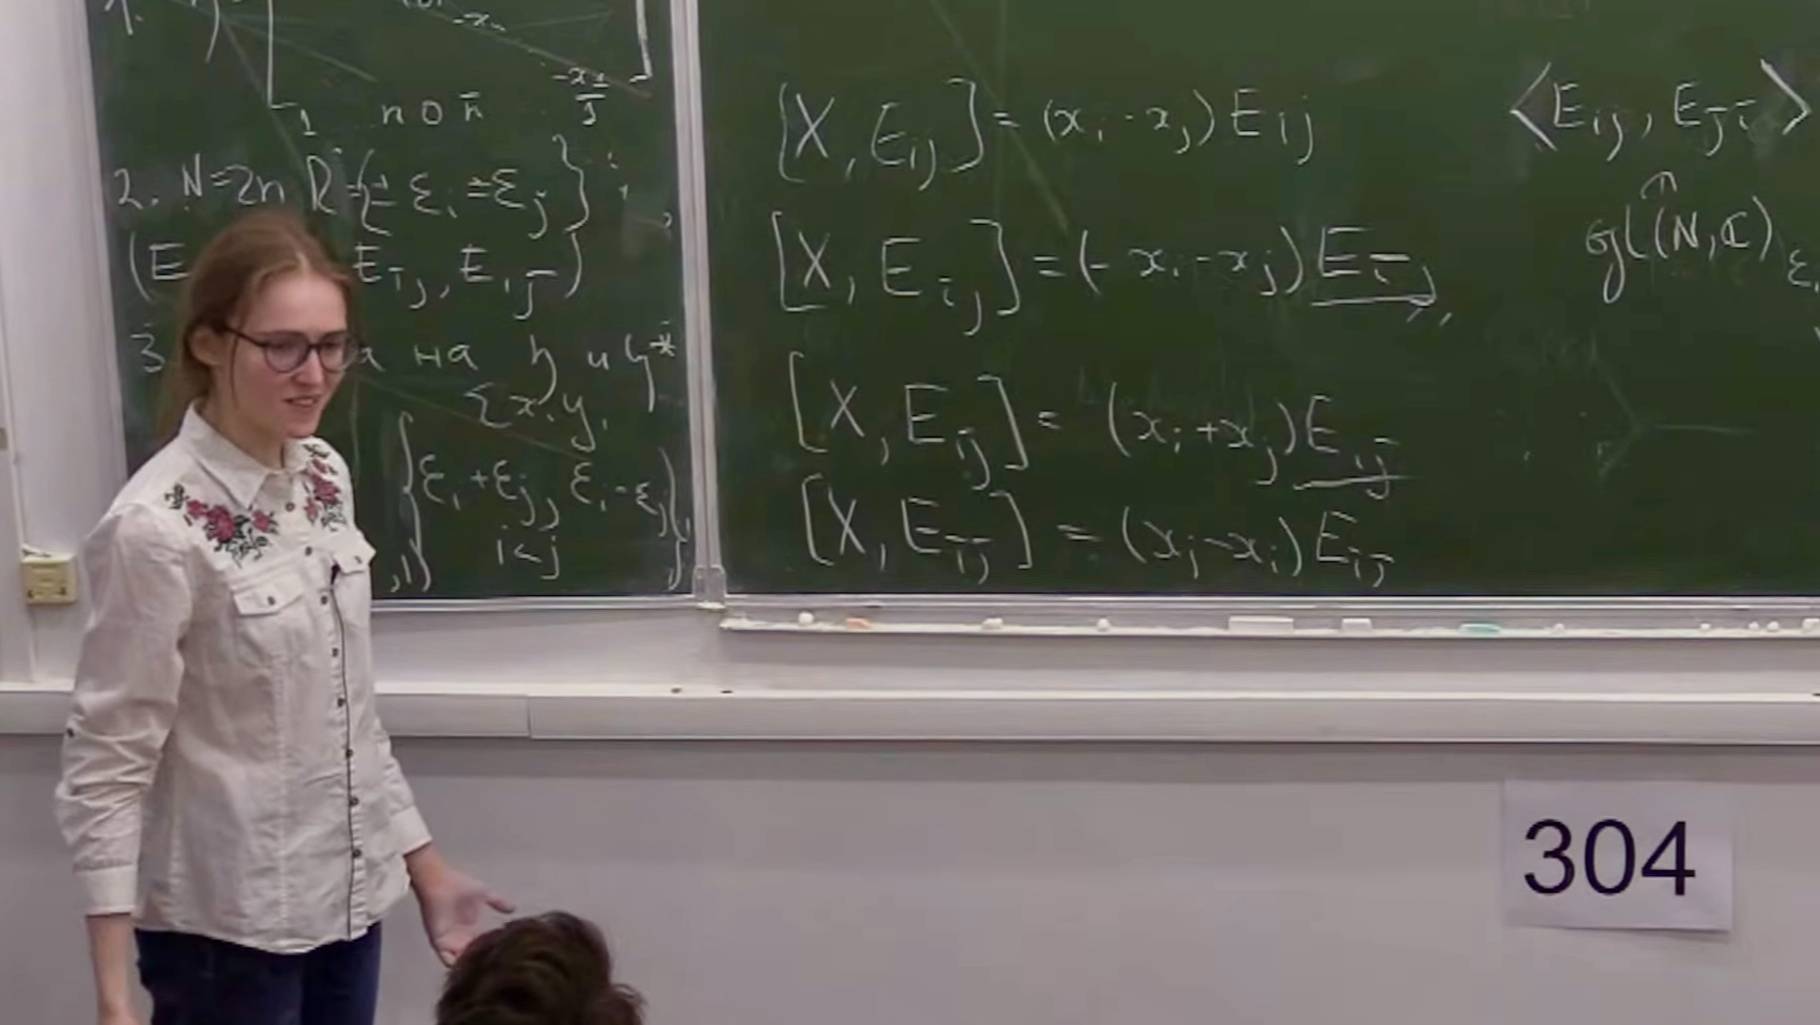 1.
-x₁
1 n 0 n̄ -x₁/1
2. N=2n R={±εᵢ±εⱼ}
(E E_{īj}, E_{ij̄})
3. на 𝔥 и 𝔥*
{x,y,
{εᵢ+εⱼ, εᵢ-εⱼ},
i<j
[X, E_{ij}] = (xᵢ-xⱼ)E_{ij}
[X, E_{īj}] = (-xᵢ-xⱼ)E_{īj}
[X, E_{ij̄}] = (xᵢ+xⱼ)E_{ij̄}
[X, E_{īj̄}] = (xⱼ-xᵢ)E_{īj̄}
⟨E_{ij}, E_{ji}⟩
∩
gl(N,ℂ)
304